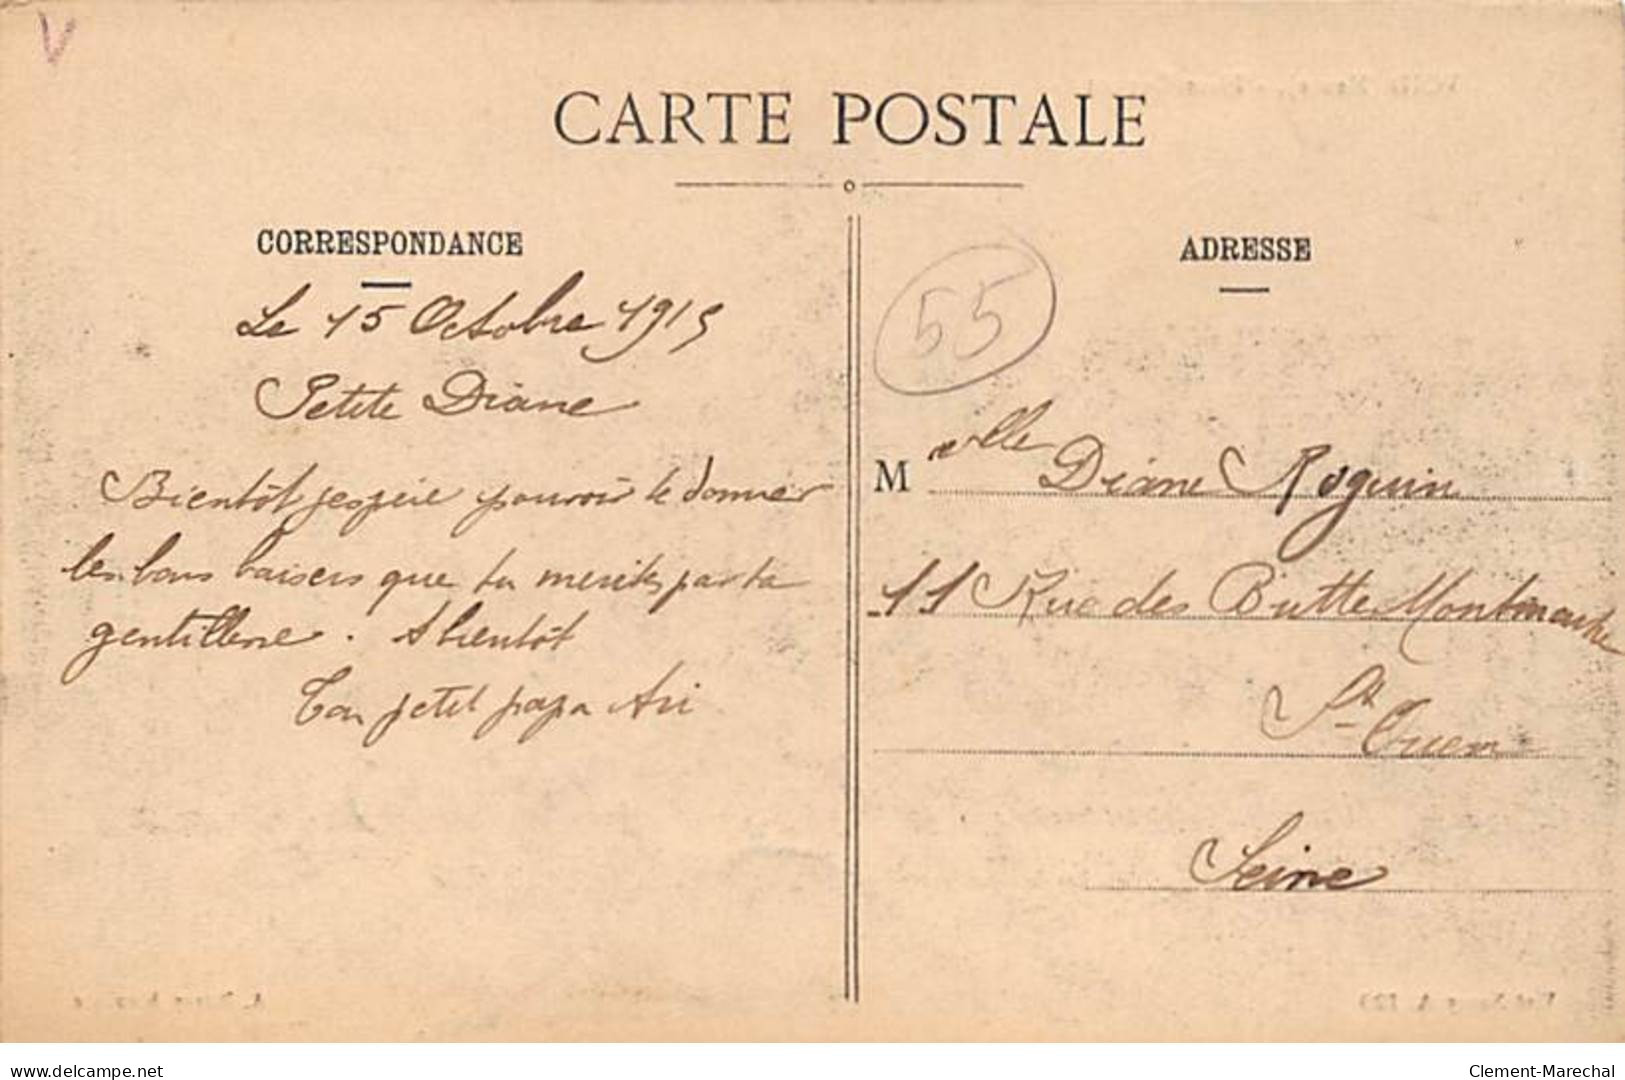 V
CARTE POSTALE
CORRESPONDANCE
Le 15 Octobre 1915
Petite Diane
Bientôt j'espère pouvoir te donner
les bons baisers que tu merites par ta
gentillesse. A bientôt
Ton petit papa Ari
ADRESSE
55
Melle Diane Roguin
11 Rue des Buttes Montmartre
St Ouen
Seine
www.delcampe.net
Clement-Marechal